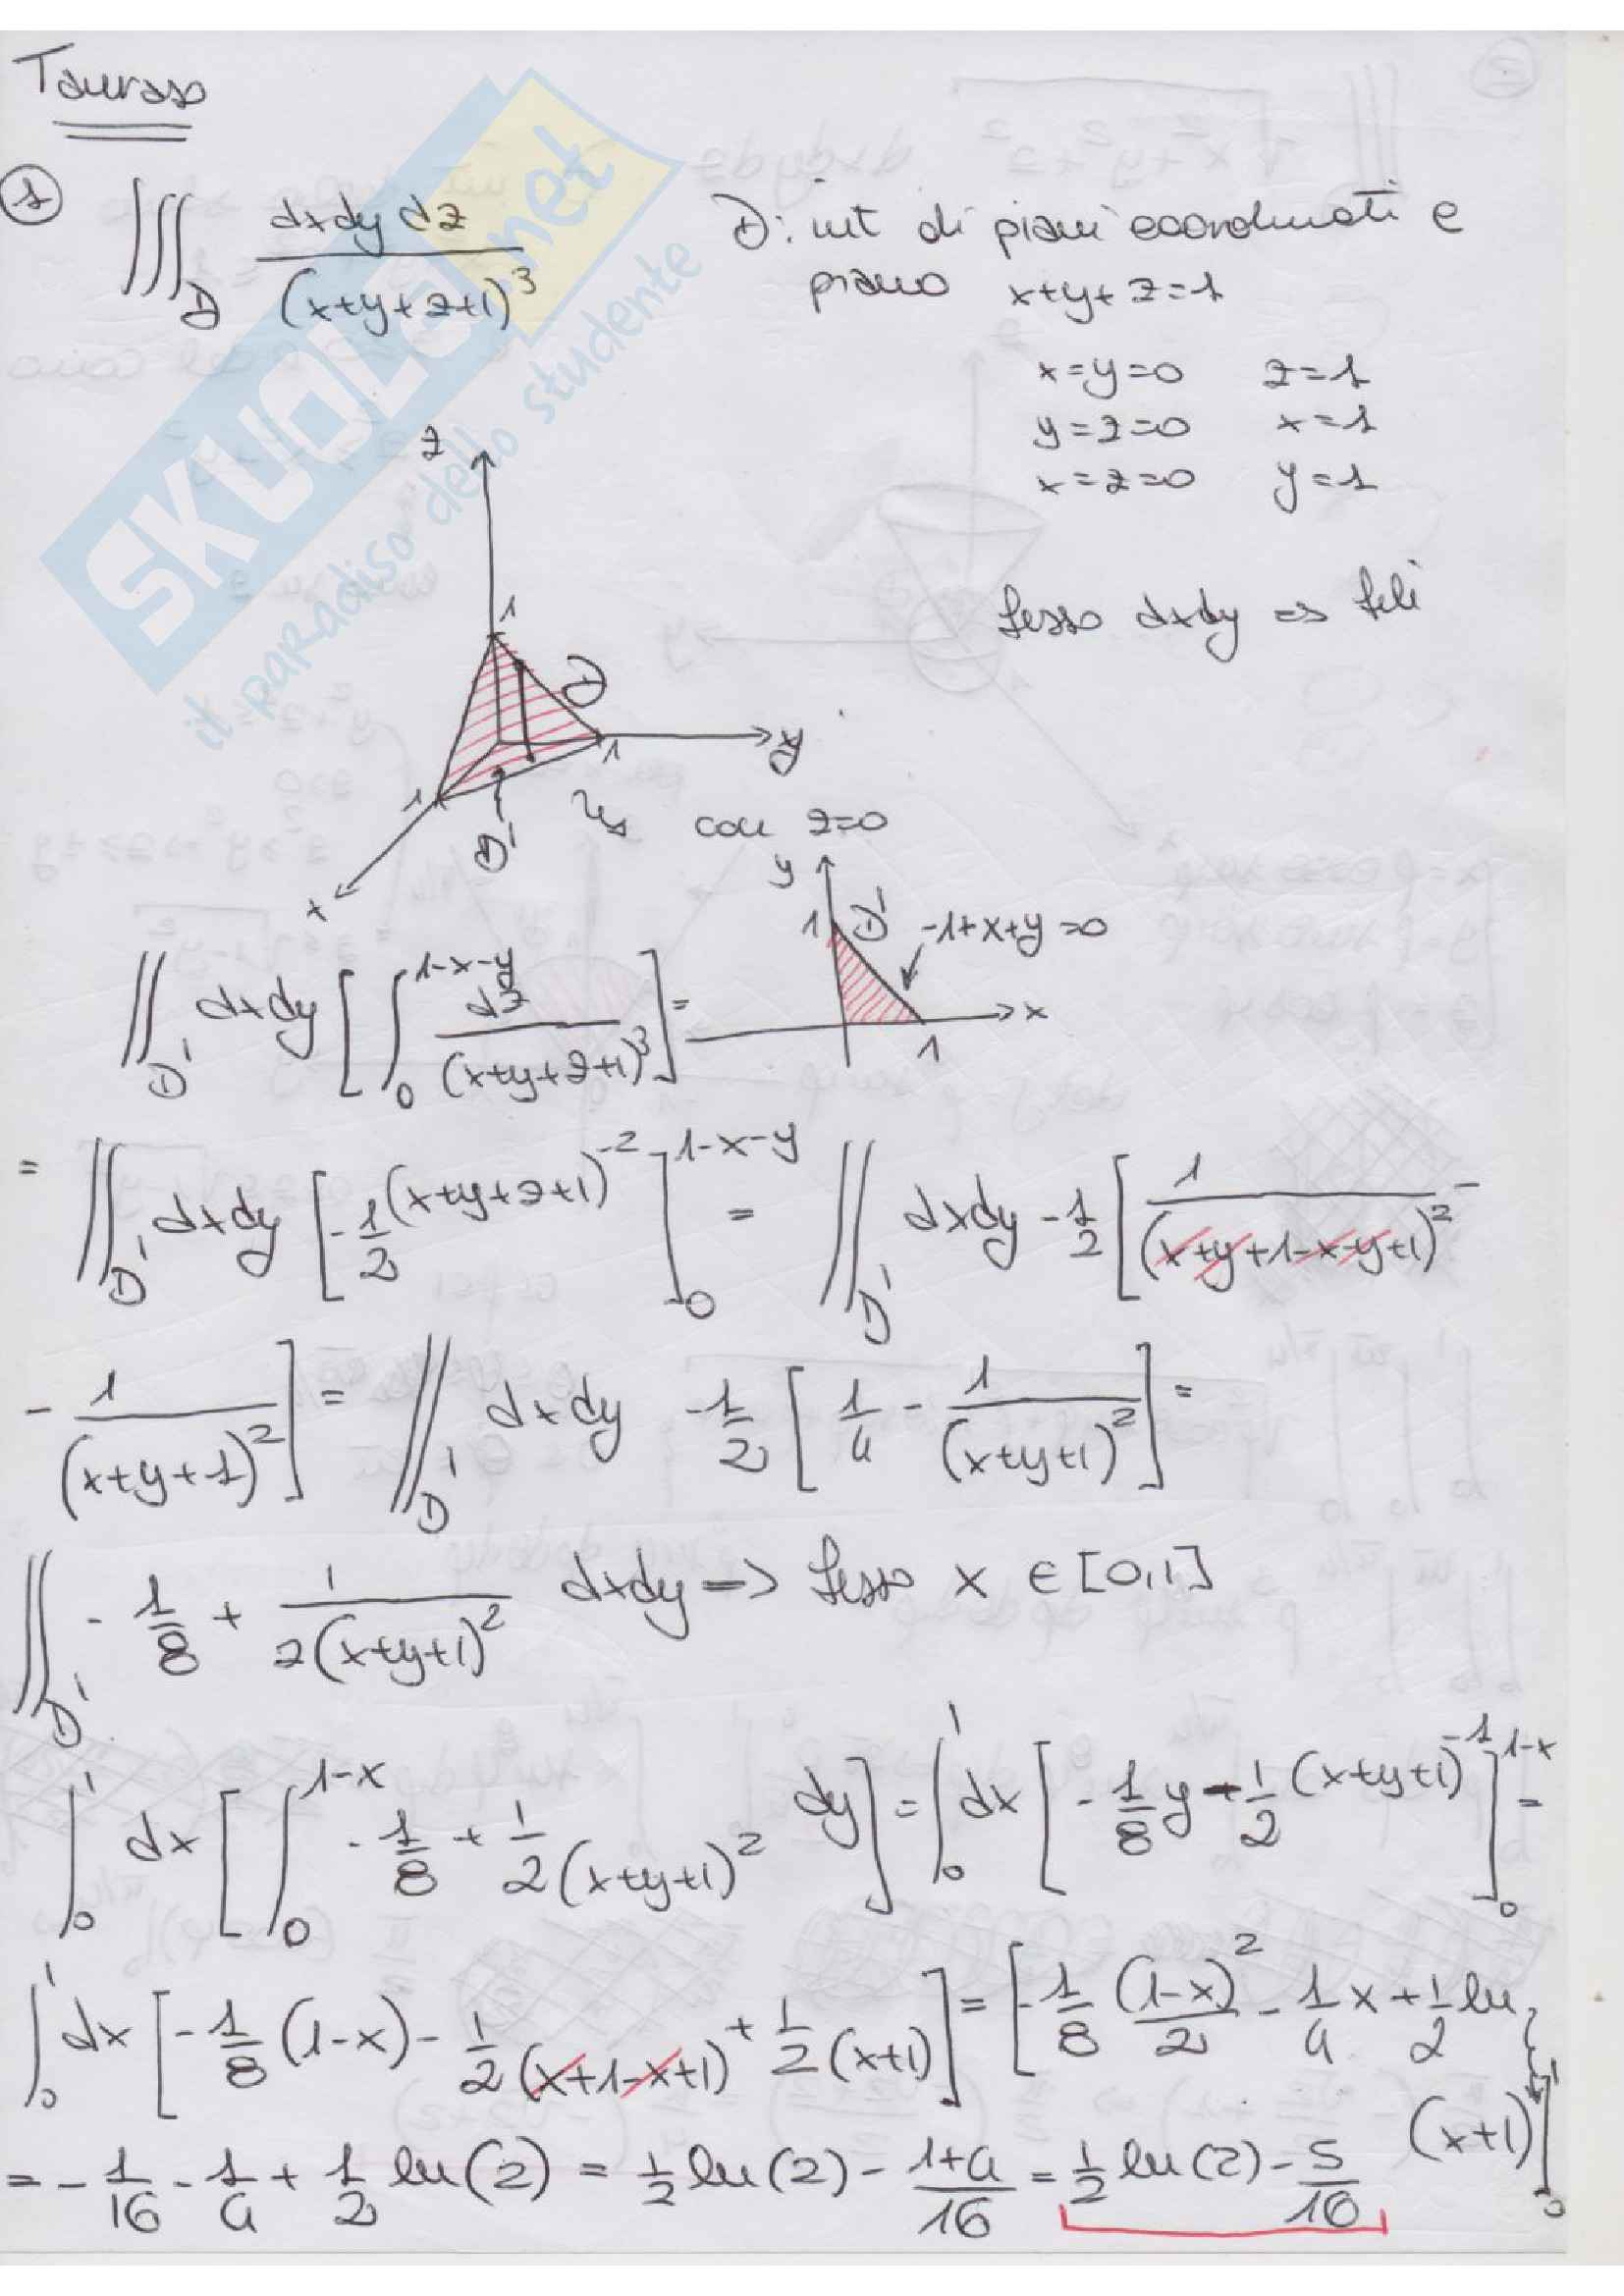 Tauraso
① ∭_D dxdydz / (x+y+z+1)³ D: int di piani coordinati e
piano x+y+z=1
x=y=0 z=1
y=z=0 x=1
x=z=0 y=1
fisso dxdy => fili
z
1
D
1
y
1
x
D'
con z=0
y
1 D' -1+x+y=0
x
1
∬_D' dxdy [∫_0^{1-x-y} dz / (x+y+z+1)³] =
= ∬_D' dxdy [-1/2 (x+y+z+1)^{-2}]_0^{1-x-y} = ∬_D' dxdy -1/2 [1/(x+y+1-x-y+1)² -
- 1/(x+y+1)²] = ∬_D' dxdy -1/2 [1/4 - 1/(x+y+1)²] =
∬_D' -1/8 + 1/2(x+y+1)² dxdy => fisso x ∈ [0,1]
∫_0^1 dx [∫_0^{1-x} -1/8 + 1/2(x+y+1)² dy] = ∫_0^1 dx [-1/8 y - 1/2 (x+y+1)^{-1}]_0^{1-x} =
∫_0^1 dx [-1/8 (1-x) - 1/2(x+1-x+1) + 1/2(x+1)] = [-1/8 (1-x)²/2 - 1/4 x + 1/2 ln
(x+1)]_0
= -1/16 - 1/4 + 1/2 ln(2) = 1/2 ln(2) - 1+4/16 = 1/2 ln(2) - 5/16
SKUOLA.net
il paradiso dello studente